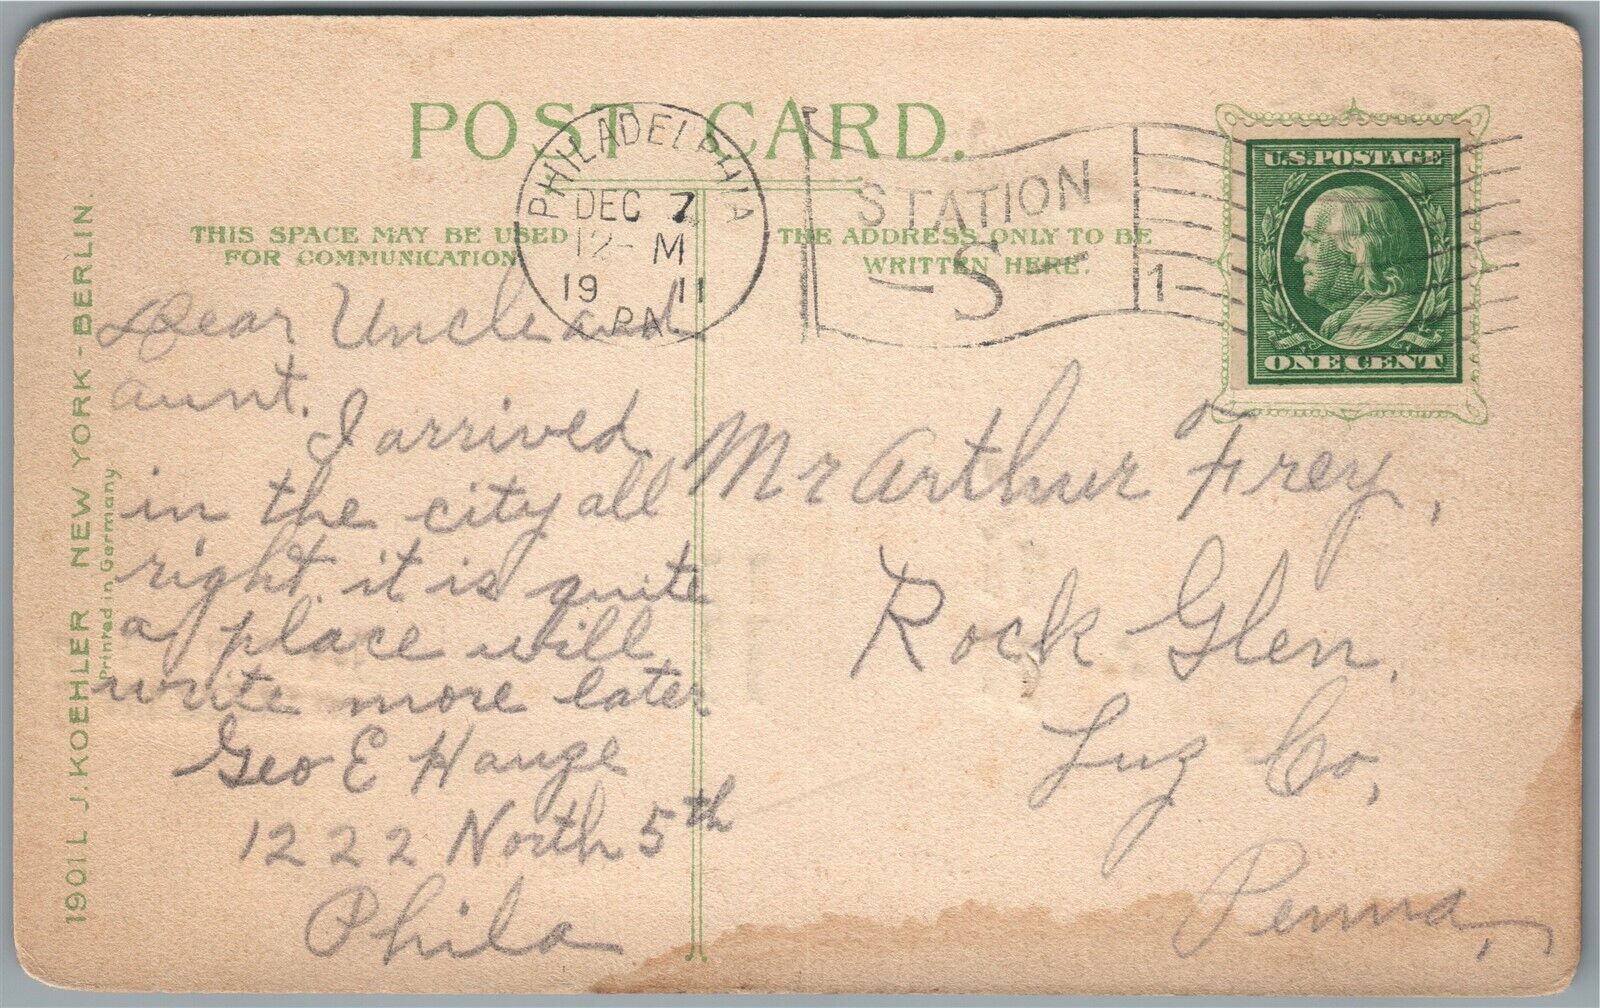 POST CARD.
PHILADELPHIA
DEC 7
12-M
1911
PA
STATION
S
1
U.S. POSTAGE
ONE CENT
THIS SPACE MAY BE USED
FOR COMMUNICATION
THE ADDRESS ONLY TO BE
WRITTEN HERE.
1901 L J. KOEHLER NEW YORK - BERLIN.
Printed in Germany
Dear Uncle and
aunt.
I arrived
in the city all
right. it is quite
a place will
write more later
Geo E Hauze
1222 North 5th
Phila
Mr Arthur Frey,
Rock Glen,
Luz Co,
Penna,